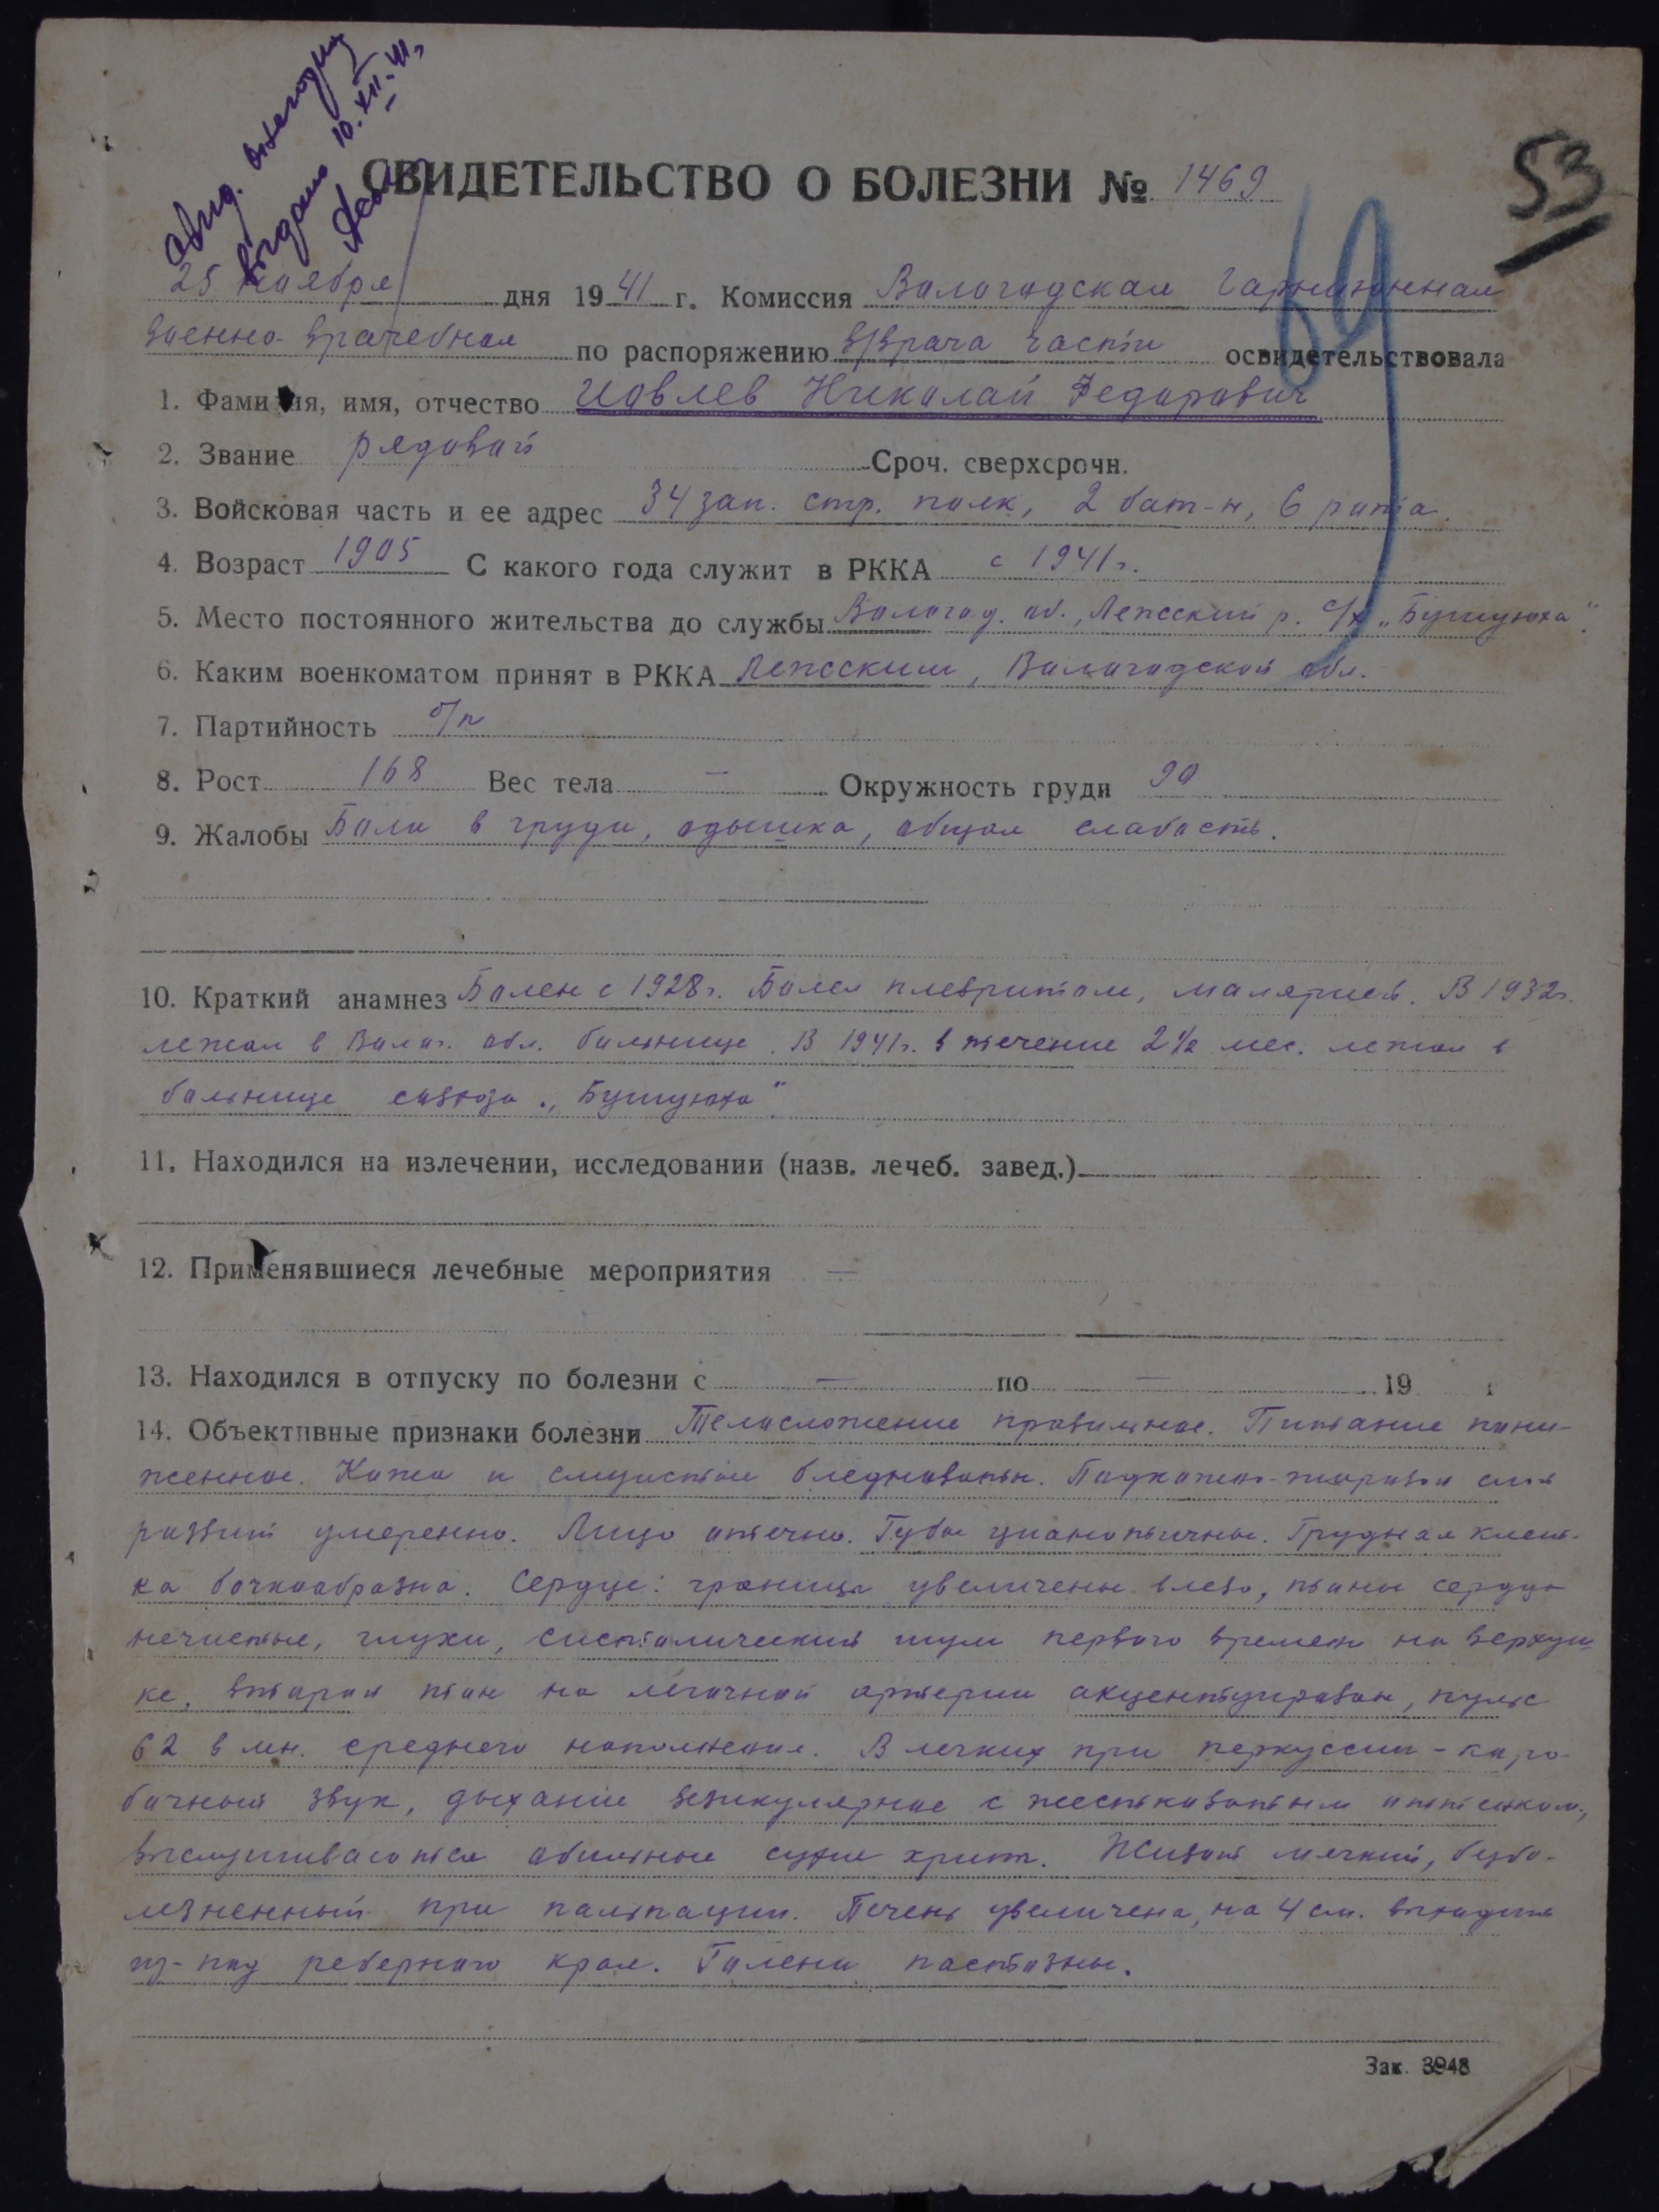 выдано 10.XII.41.
53
СВИДЕТЕЛЬСТВО О БОЛЕЗНИ № 1469
69
25 ноября дня 1941 г. Комиссия Вологодская Гарнизонная
военно-врачебная по распоряжению в/врача части освидетельствовала
1. Фамилия, имя, отчество Иовлев Николай Федорович
2. Звание рядовой Сроч. сверхсрочн.
3. Войсковая часть и ее адрес 34 зап. стр. полк, 2 бат-н, 6 рота.
4. Возраст 1905 С какого года служит в РККА с 1941 г.
5. Место постоянного жительства до службы Вологод. об., Лежский р. с/х „Бушуиха".
6. Каким военкоматом принят в РККА Лежским, Вологодской обл.
7. Партийность б/п
8. Рост 168 Вес тела — Окружность груди 90
9. Жалобы Боли в груди, одышка, общая слабость.
10. Краткий анамнез Болен с 1928 г. Болел плевритом, малярией. В 1932 г.
лежал в Волог. обл. больнице. В 1941 г. в течение 2½ мес. лежал в
больнице совхоза „Бушуиха".
11. Находился на излечении, исследовании (назв. лечеб. завед.)
12. Применявшиеся лечебные мероприятия —
13. Находился в отпуску по болезни с — по — 19 г
14. Объективные признаки болезни Телосложение правильное. Питание пони-
женное. Кожа и слизистые бледноваты. Подкожно-жировой слой
развит умеренно. Лицо отечно. Губы цианотичны. Грудная клет-
ка бочкообразна. Сердце: границы увеличены влево, тоны сердца
нечистые, глухи, систолический шум первого времени на верхуш-
ке, второй тон на легочной артерии акцентуирован, пульс
62 в мн. среднего наполнения. В легких при перкуссии - коро-
бочный звук, дыхание везикулярное с жестковатым оттенком,
выслушиваются обильные сухие хрипы. Живот мягкий, безбо-
лезненный при пальпации. Печень увеличена, на 4 см. выходит
из-под реберного края. Голени пастозны.
Зак. 3948